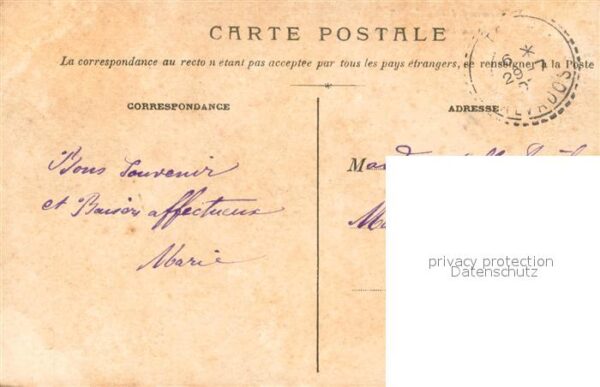 CARTE POSTALE
La correspondance au recto n'étant pas acceptée par tous les pays étrangers, se renseigner à la Poste
CORRESPONDANCE
ADRESSE
CALVADOS
Bons Souvenir
et Baisers affectueux
Marie
privacy protection
Datenschutz